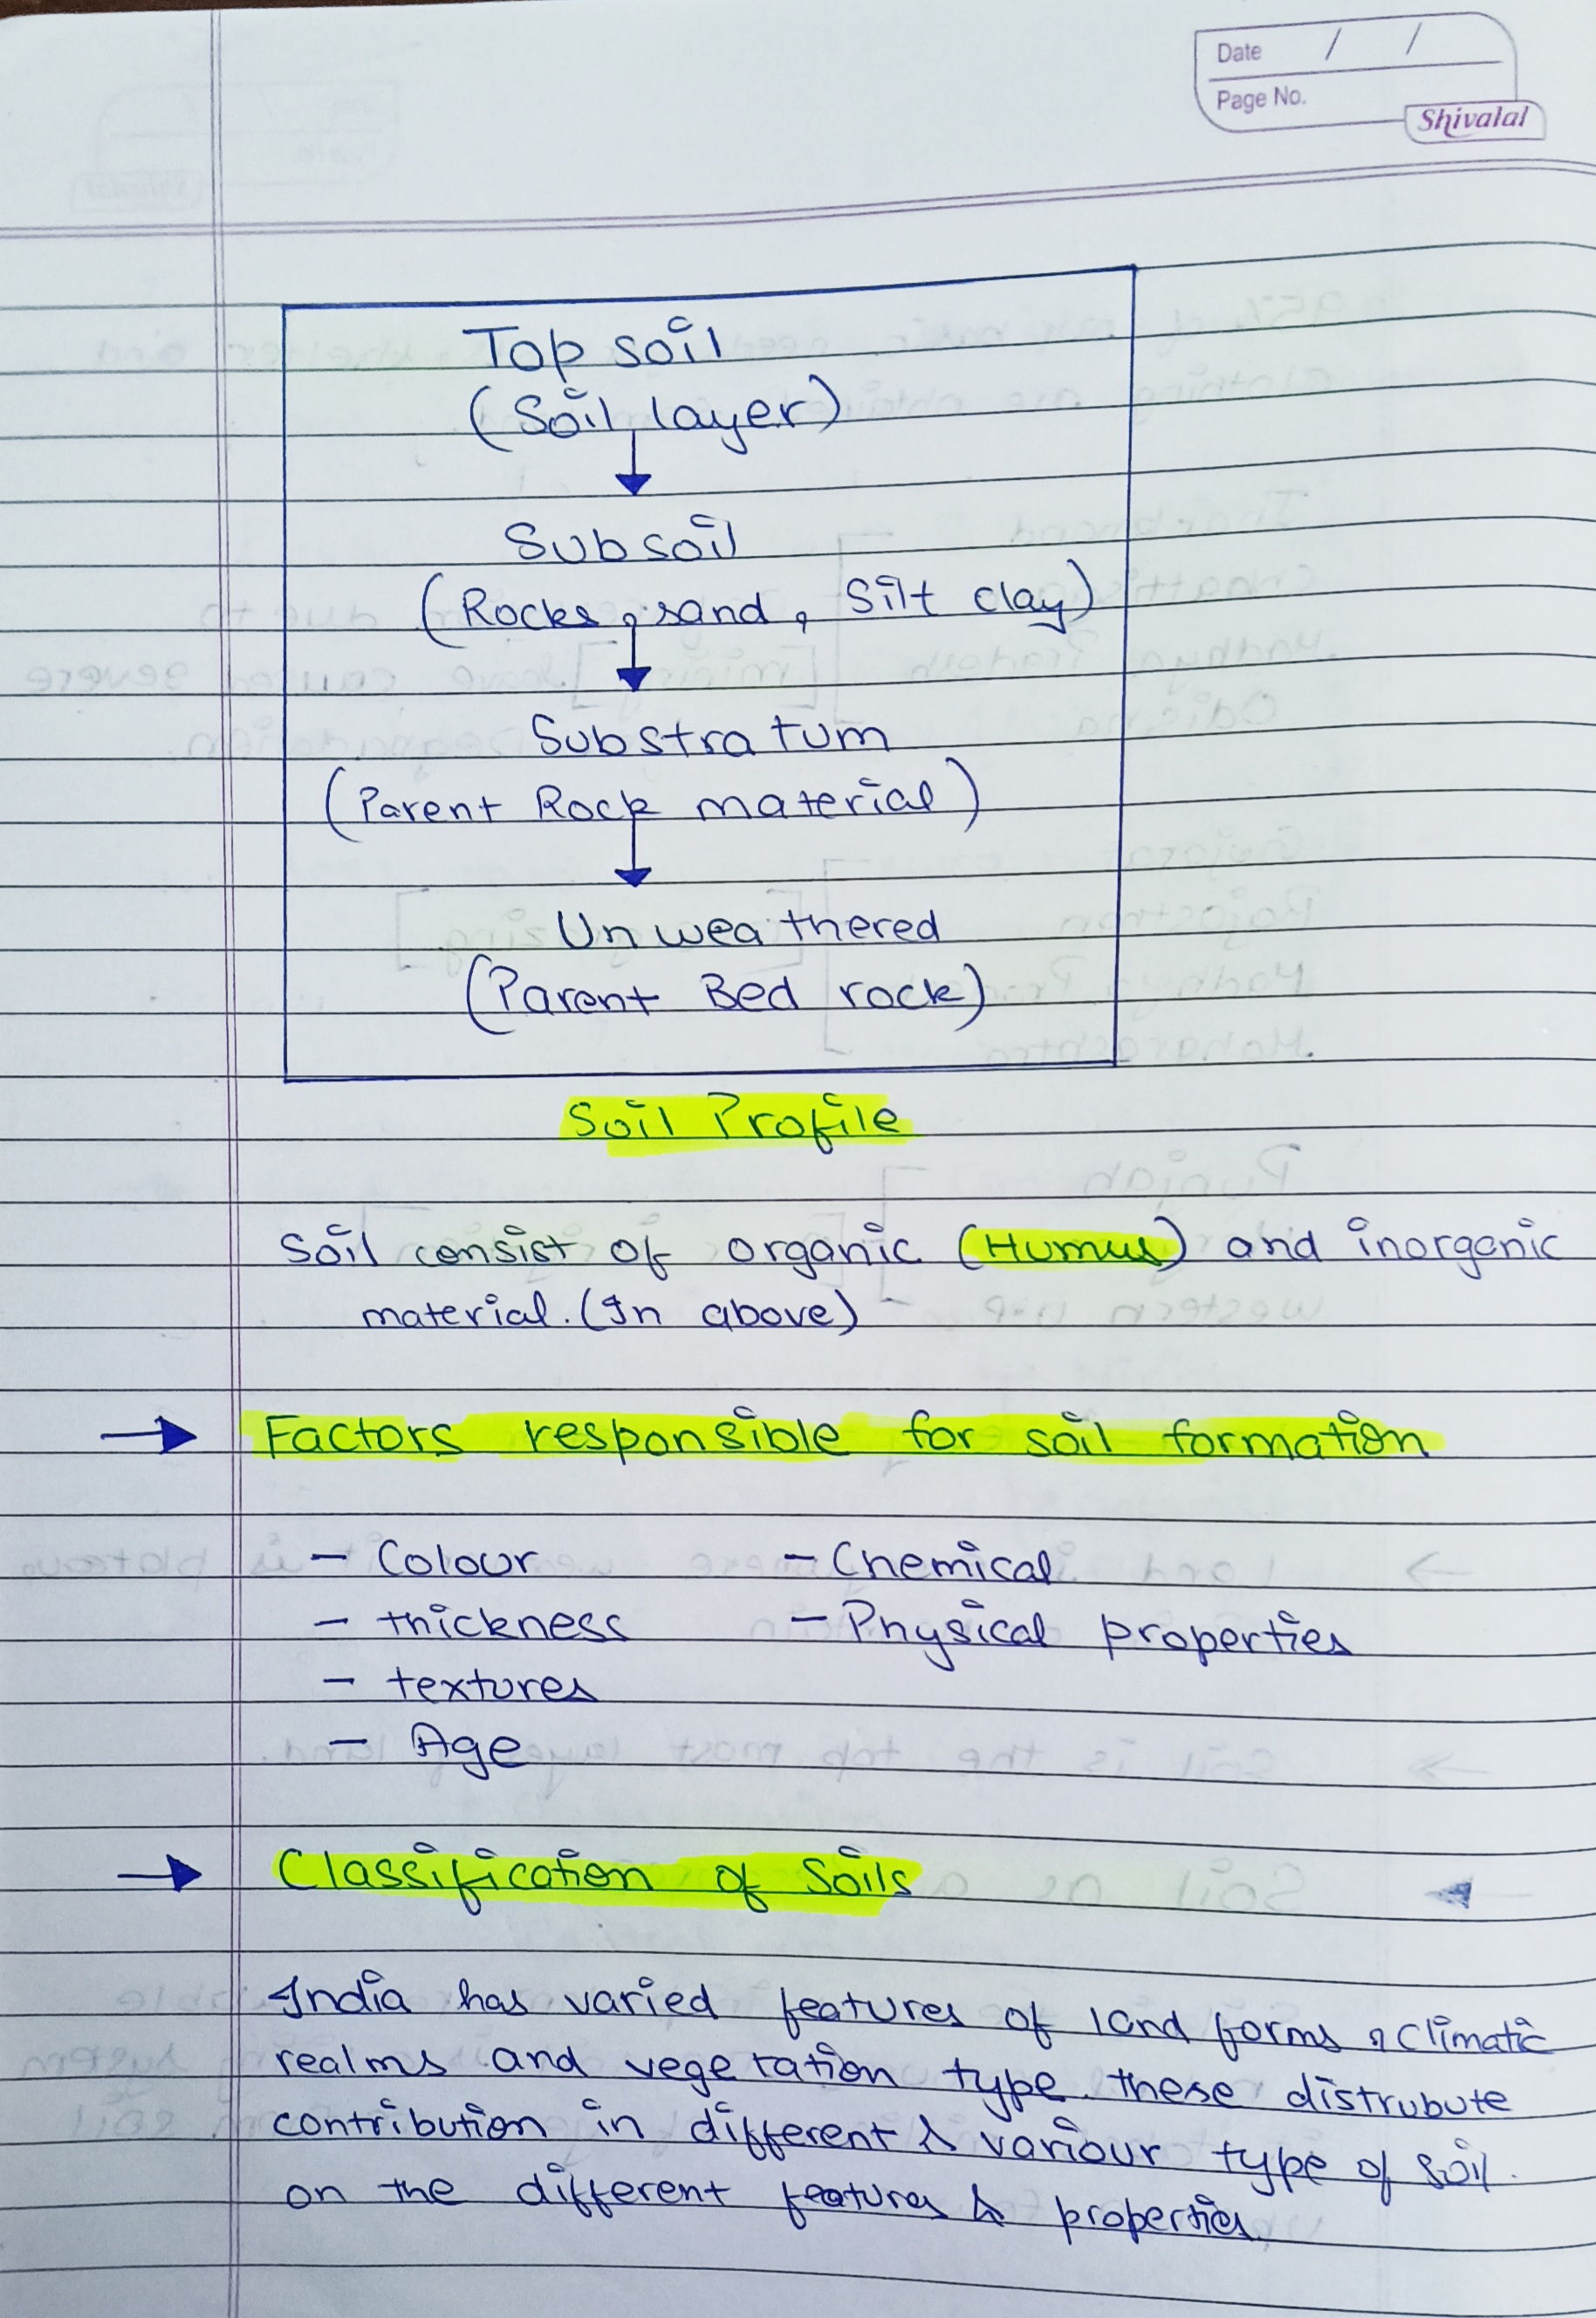 Date / /
Page No.
Shivalal
Top soil
(Soil layer)
Subsoil
(Rocks, sand, Silt clay)
Substratum
(Parent Rock material)
Unweathered
(Parent Bed rock)
Soil Profile
Soil consist of organic (Humus) and inorganic
material. (In above)
→ Factors responsible for soil formation
- Colour - Chemical
- thickness - Physical properties
- textures
- Age
→ Classification of Soils
India has varied features of land forms, Climatic
realms and vegetation type. these distrubute
contribution in different & variour type of soil.
on the different features & properties.